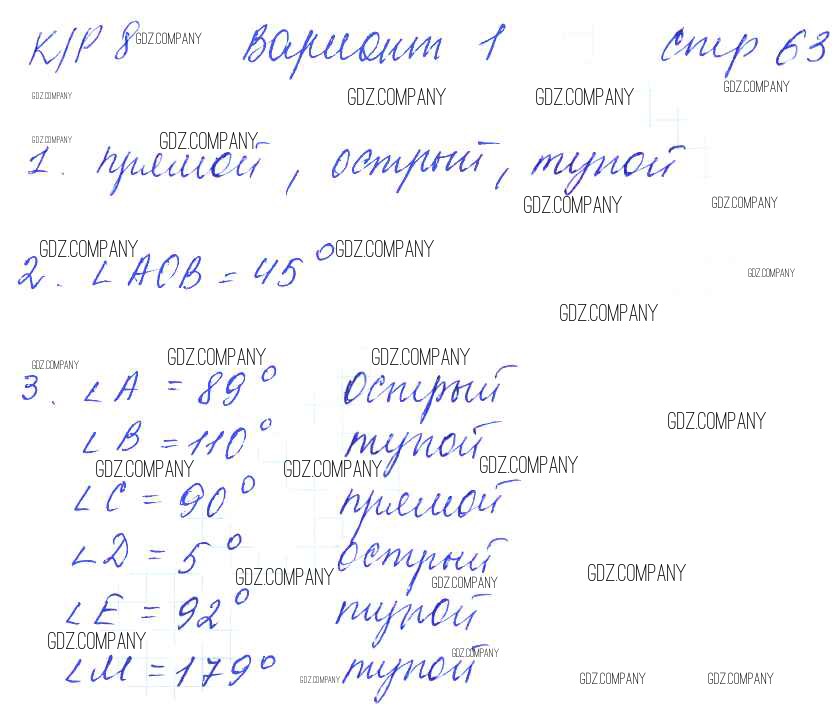 К/Р 8 GDZ.COMPANY Вариант 1 стр 63
GDZ.COMPANY GDZ.COMPANY GDZ.COMPANY GDZ.COMPANY
GDZ.COMPANY GDZ.COMPANY
1. прямой, острый, тупой
GDZ.COMPANY GDZ.COMPANY
GDZ.COMPANY GDZ.COMPANY
2. ∠AOB = 45° GDZ.COMPANY
GDZ.COMPANY
GDZ.COMPANY GDZ.COMPANY GDZ.COMPANY
3. ∠A = 89° острый
GDZ.COMPANY
∠B = 110° тупой
GDZ.COMPANY GDZ.COMPANY GDZ.COMPANY
∠C = 90° прямой
∠D = 5° острый
GDZ.COMPANY GDZ.COMPANY GDZ.COMPANY
∠E = 92° тупой
GDZ.COMPANY GDZ.COMPANY
∠M = 179° GDZ.COMPANY тупой GDZ.COMPANY GDZ.COMPANY